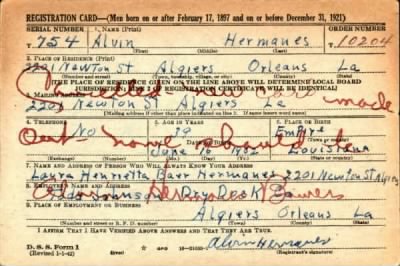 REGISTRATION CARD—(Men born on or after February 17, 1897 and on or before December 31, 1921)
SERIAL NUMBER 1. NAME (Print) ORDER NUMBER
T 754 Alvin Hermanes 10204
(First) (Middle) (Last)
2. PLACE OF RESIDENCE (Print)
2201 Newton St Algiers Orleans La
(Number and street) (Town, township, village, or city) (County) (State)
[THE PLACE OF RESIDENCE GIVEN ON THE LINE ABOVE WILL DETERMINE LOCAL BOARD
JURISDICTION; REGISTRATION CERTIFICATE WILL BE IDENTICAL]
Cancelled new card made
3. MAILING ADDRESS
2201 Newton St Algiers La
[Mailing address if other than place indicated on line 2. If same insert word same]
4. TELEPHONE 5. AGE IN YEARS 6. PLACE OF BIRTH
No 39 Empire
DATE OF BIRTH
June 16 Louisiana
(Exchange) (Number) (Mo.) (Day) (Yr.) (State or country)
7. NAME AND ADDRESS OF PERSON WHO WILL ALWAYS KNOW YOUR ADDRESS
Laura Henrietta Baer Hermanes 2201 Newton St Algiers
8. EMPLOYER'S NAME AND ADDRESS
Johnson Dry Dock
9. PLACE OF EMPLOYMENT OR BUSINESS
Algiers Orleans La
(Number and street or R. F. D. number) (Town) (County) (State)
I AFFIRM THAT I HAVE VERIFIED ABOVE ANSWERS AND THAT THEY ARE TRUE.
D. S. S. Form 1
(Revised 1-1-42) (over) Alvin Hermanes
(Registrant's signature)